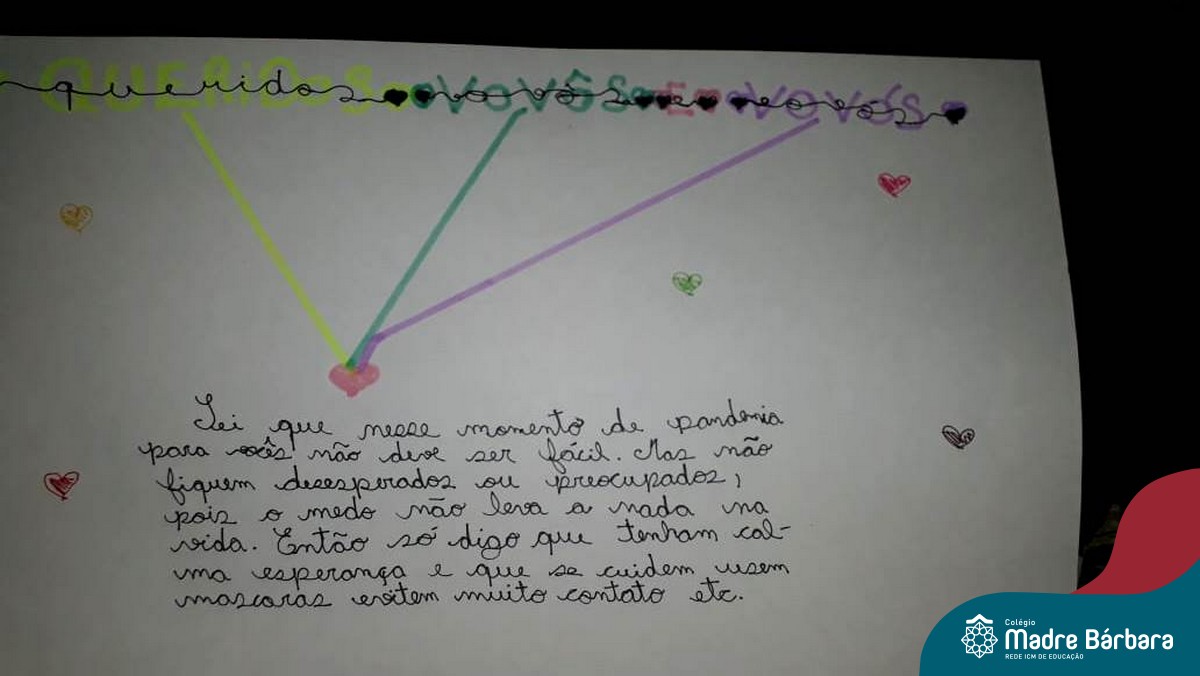 queridos vovôs e vovós
QUERIDOS VOVÔS E VOVÓS
Sei que nesse momento de pandemia
para vocês não deve ser fácil. Mas não
fiquem desesperados ou preocupados,
pois o medo não leva a nada na
vida. Então só digo que tenham cal-
ma esperança e que se cuidem usem
mascaras evitem muito contato etc.
Colégio
Madre Bárbara
REDE ICM DE EDUCAÇÃO